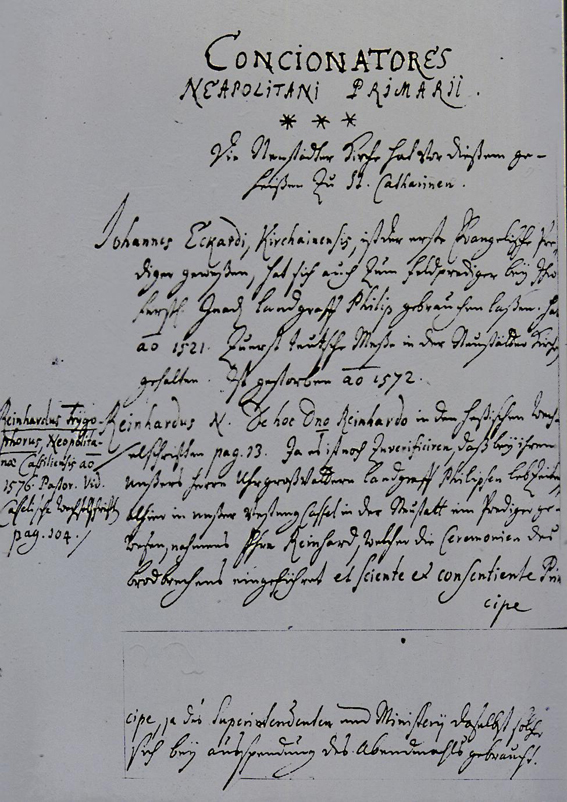 CONCIONATORES
NEAPOLITANI PRIMARII.
* * *
Die Neustädter Kirche hat vor diesem ge-
heißen zu St. Catharinen.
Johannes Eckardi, Kirchainensis, ist der erste Evangelische Pre-
diger geweßen, hat sich auch zum Feldprediger bey
Gnad. Landgraff Philip gebrauchen laßen. hat
ao 1521. Zuerst teutsche Meße in der Neustädter Kirch
gehalten. Ist gestorben ao 1572.
Reinhardus N. De hoc Dno Reinhardo in den Heßischen
pag. 13. Ja es ist noch zu verificiren, daß bey
unsers Herrn Uhrgroßvattern Landgraff Philipsen lebzeiten
alhier in unser Vestung Cassel in der Neustatt ein Prediger ge-
wesen, nahmens Ehrn Reinhard, welcher die Ceremonien des
brodbrechens eingeführet et sciente et consentiente Prin
cipe
Reinhardus Trygo-
phorus, Neopolita-
nae Cassiliensis ao
1576. Pastor. Vid.
Casselische
pag. 104.
cipe, ja des Superintendenten und Ministerij daselbst
sich bey ausspendung des Abendmahls gebraucht.